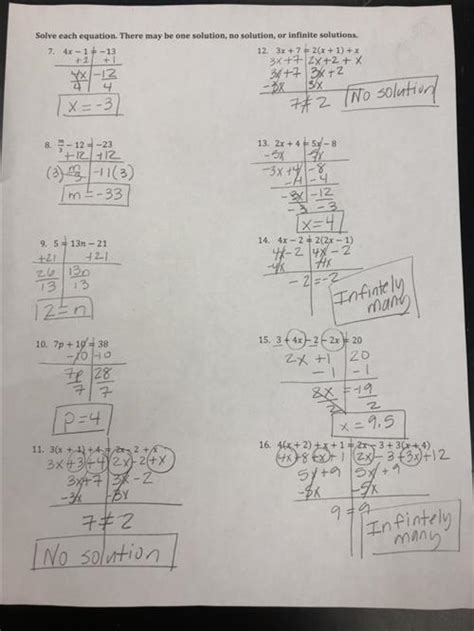 Solve each equation. There may be one solution, no solution, or infinite solutions.
7. 4x − 1 = −13
+1 +1
4x −12
4 4
x = −3
8. m/3 − 12 = −23
+12 +12
(3) m/3 −11(3)
m = −33
9. 5 = 13n − 21
+21 +21
26 13n
13 13
2 = n
10. 7p + 10 = 38
−10 −10
7p 28
7 7
p = 4
11. 3(x + 1) + 4 = 2x − 2 + x
3x + 3 + 4 2x − 2 + x
3x + 7 3x − 2
−3x −3x
7 ≠ 2
No solution
12. 3x + 7 = 2(x + 1) + x
3x + 7 2x + 2 + x
3x + 7 3x + 2
−3x 3x
7 ≠ 2
No solution
13. 2x + 4 = 5x − 8
−5x 5x
−3x + 4 −8
−4 −4
−3x −12
−3 −3
x = 4
14. 4x − 2 = 2(2x − 1)
4x − 2 4x − 2
−4x 4x
−2 = −2
Infintely
many
15. 3 + 4x − 2 − 2x = 20
2x + 1 20
−1 −1
2x = 19
2 2
x = 9.5
16. 4(x + 2) + x + 1 = 2x − 3 + 3(x + 4)
4x + 8 + x + 1 2x − 3 + 3x + 12
5x + 9 5x + 9
−5x −5x
9 = 9
Infintely
many